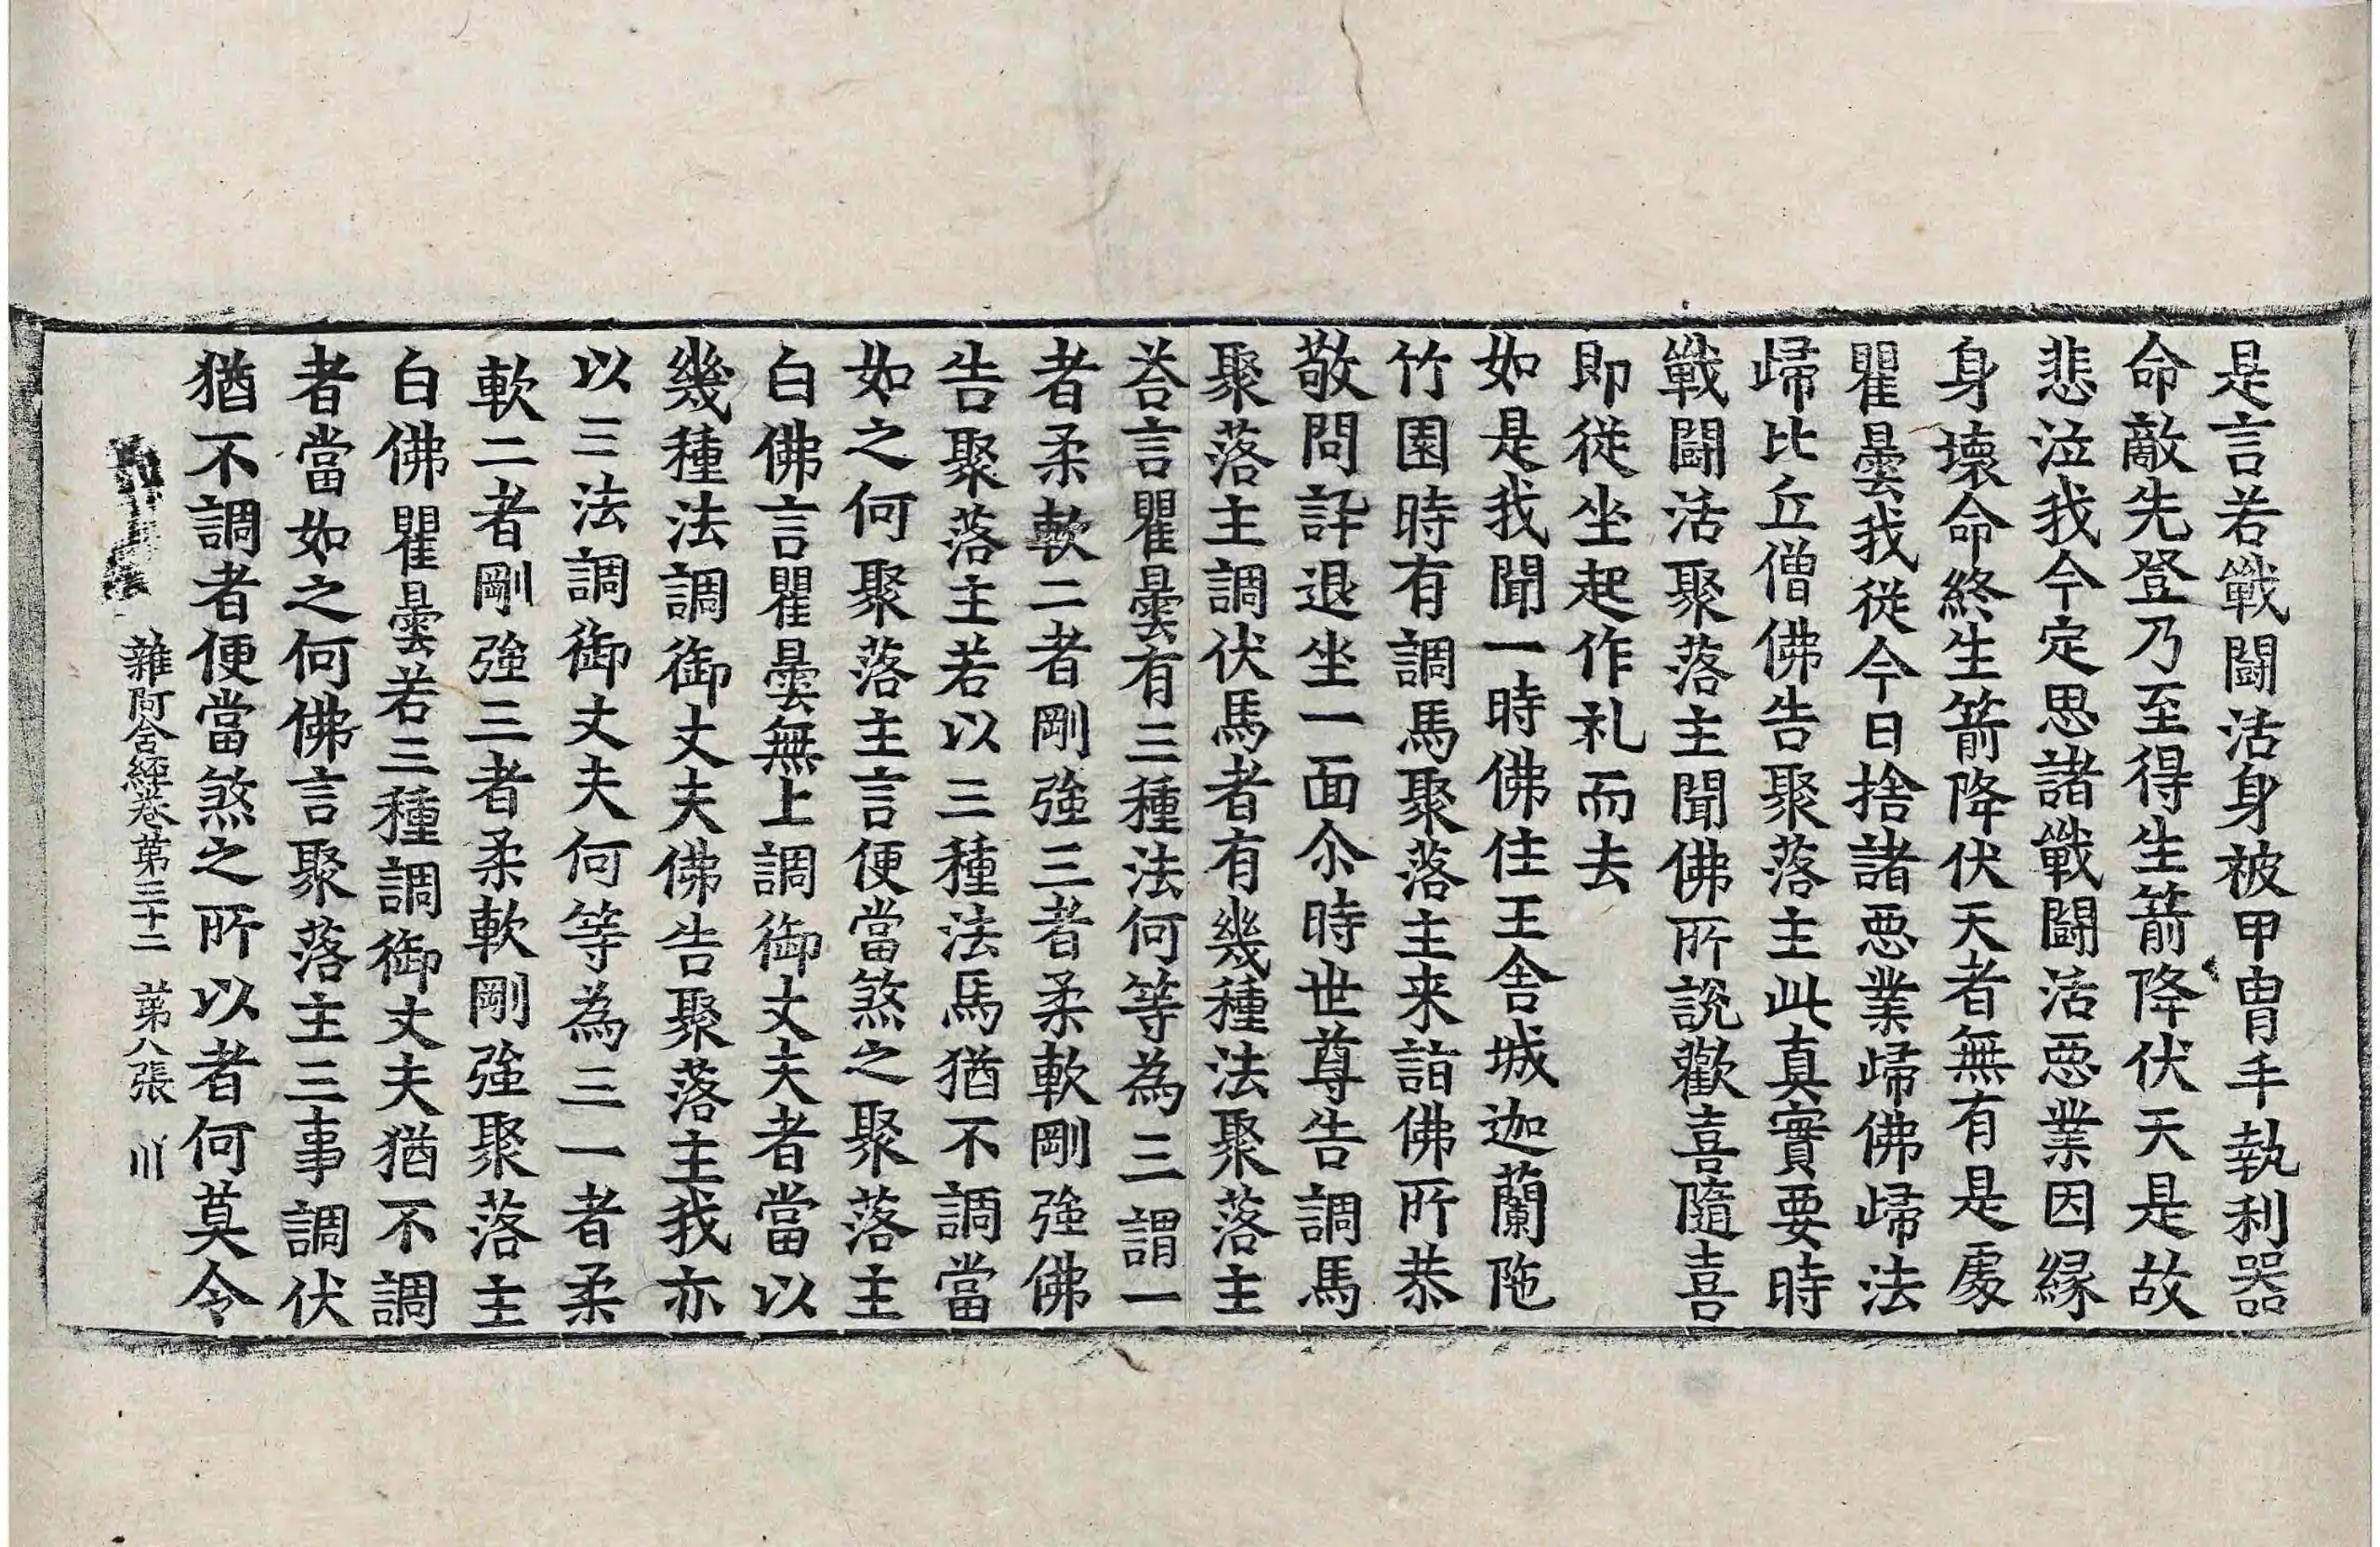 是言若戰闘活身被甲冑手執利器
命敵先登乃至得生箭降伏天是故
悲泣我今定思諸戰闘活悪業因縁
身壞命終生箭降伏天者無有是處
瞿曇我從今日捨諸悪業歸佛歸法
歸比丘僧佛告聚落主此真實要時
戰闘活聚落主聞佛所說歡喜隨喜
即從坐起作礼而去
如是我聞一時佛住王舍城迦蘭陁
竹園時有調馬聚落主来詣佛所恭
敬問訊退坐一面尒時世尊告調馬
聚落主調伏馬者有幾種法聚落主
荅言瞿曇有三種法何等為三謂一
者柔軟二者剛強三者柔軟剛強佛
告聚落主若以三種法馬猶不調當
如之何聚落主言便當煞之聚落主
白佛言瞿曇無上調御丈夫者當以
幾種法調御丈夫佛告聚落主我亦
以三法調御丈夫何等為三一者柔
軟二者剛強三者柔軟剛強聚落主
白佛瞿曇若三種調御丈夫猶不調
者當如之何佛言聚落主三事調伏
猶不調者便當煞之所以者何莫令
雜阿含經卷第三十二 第八張 川